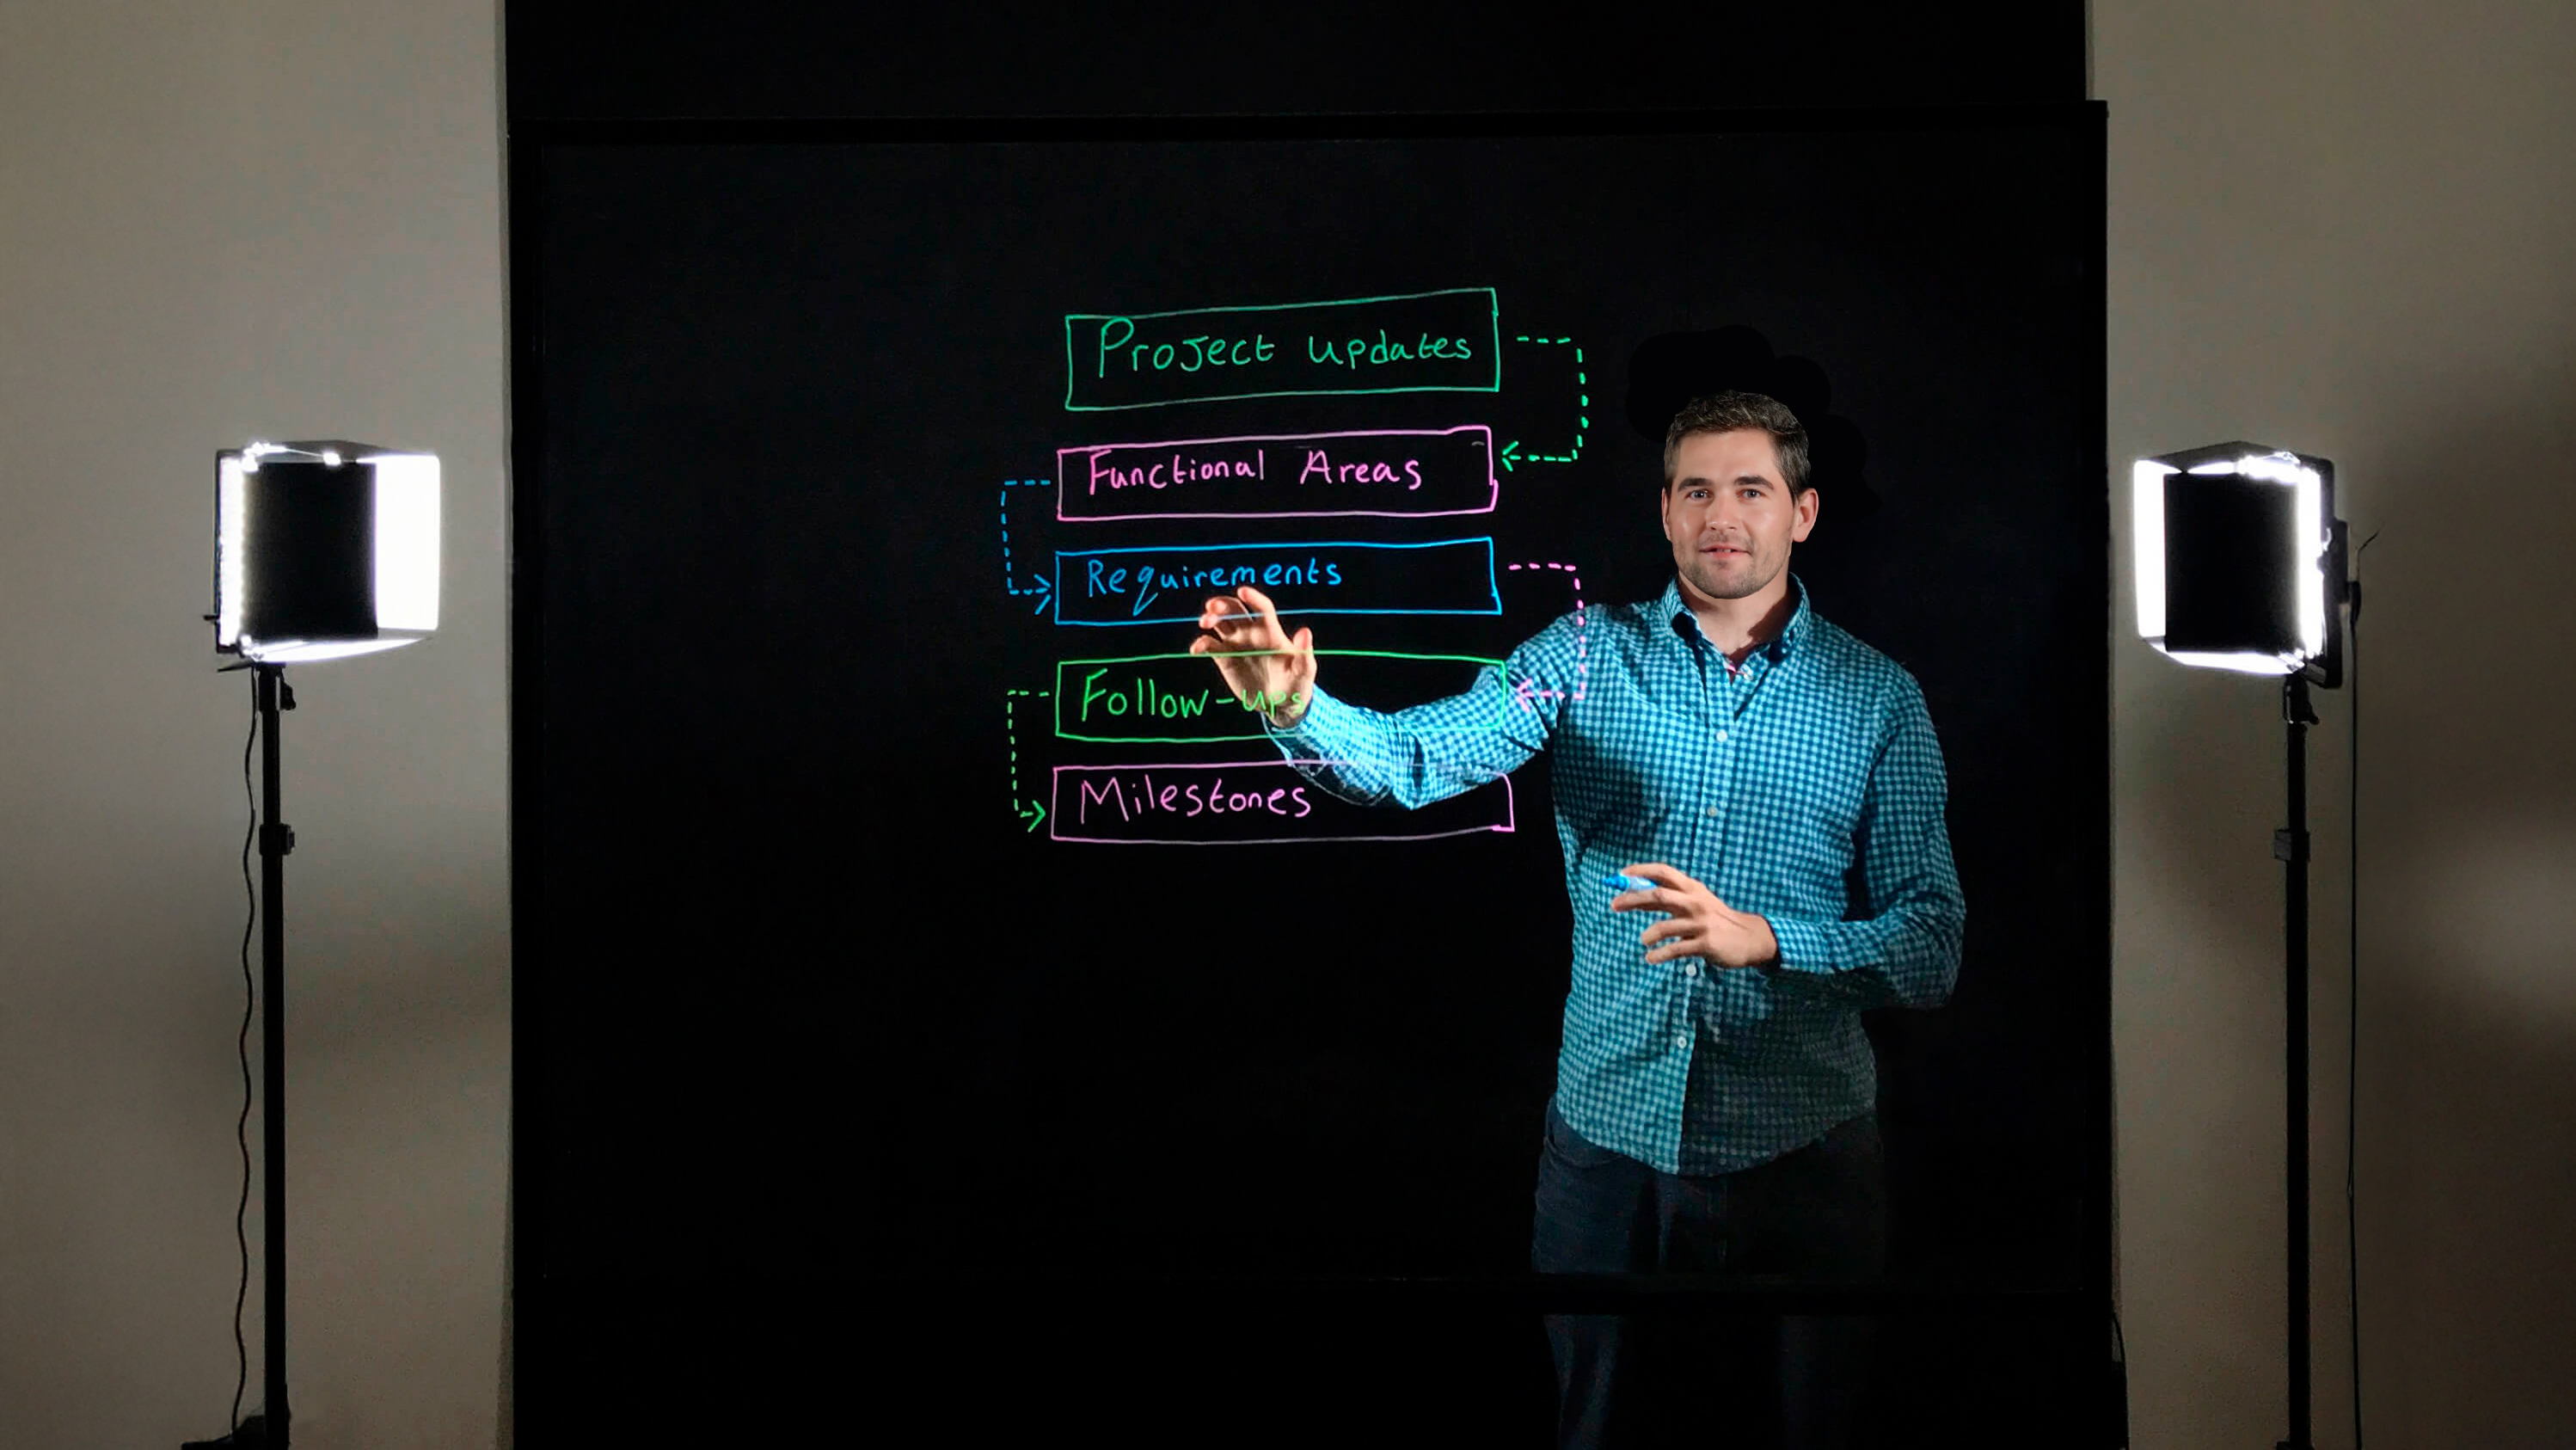 Project updates
Functional Areas
Requirements
Follow-ups
Milestones